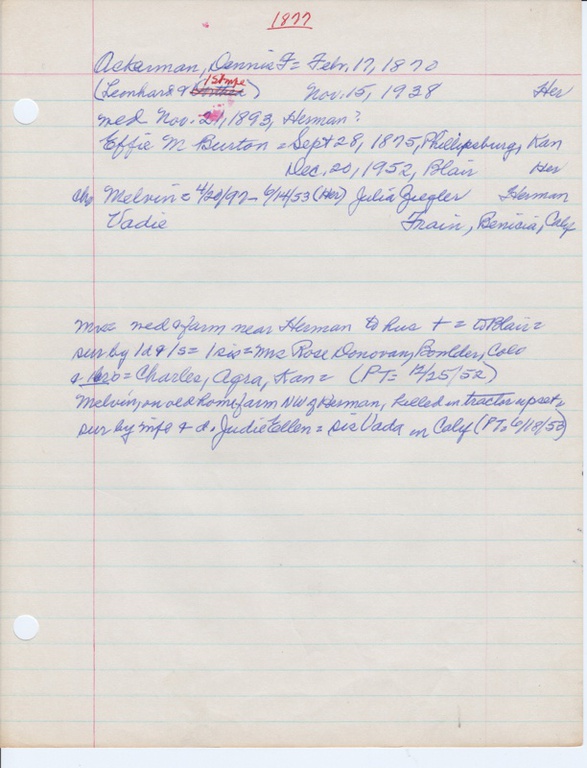 1877
Ackerman, Dennis F = Feb. 17, 1870
1st wife
(Leonhard & Dorthea) Nov. 15, 1938 Her
wed Nov. 21, 1893, Herman?
Effie M Burton = Sept 28, 1875, Phillipsburg, Kan
Dec. 20, 1952, Blair Her
Melvin = 4/20/97 - 6/14/53 (Her) Julia Ziegler Herman
Vadie Frain, Benicia, Calif
Mrs = wed & farm near Herman to hus + = to Blair =
sur by 1 d & 1 s = 1 sis = Mrs Rose Donovan, Boulder, Colo
& bro = Charles, Agra, Kan = (PT = 12/25/52)
Melvin, on old home farm NW of Herman, killed in tractor upset =
sur by wife & d. Judie Ellen = sis Vada in Calif (PT = 6/18/53)